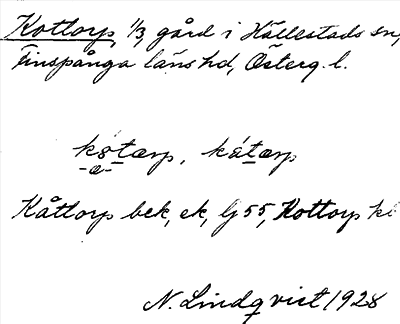 Kottorp, 1/3, gård i Hällestads sn,
Finspånga läns hd, Österg. l.
kotærp, kátærp
-a-
Kåttorp bek, ek, lj 55, Kottorp kl
N. Lindqvist 1928